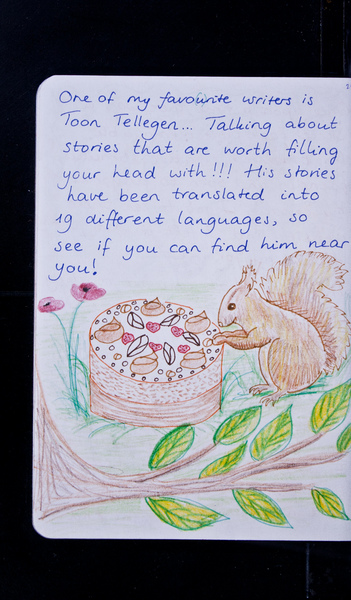 One of my favourite writers is
Toon Tellegen... Talking about
stories that are worth filling
your head with!!! His stories
have been translated into
19 different languages, so
see if you can find him near
you!